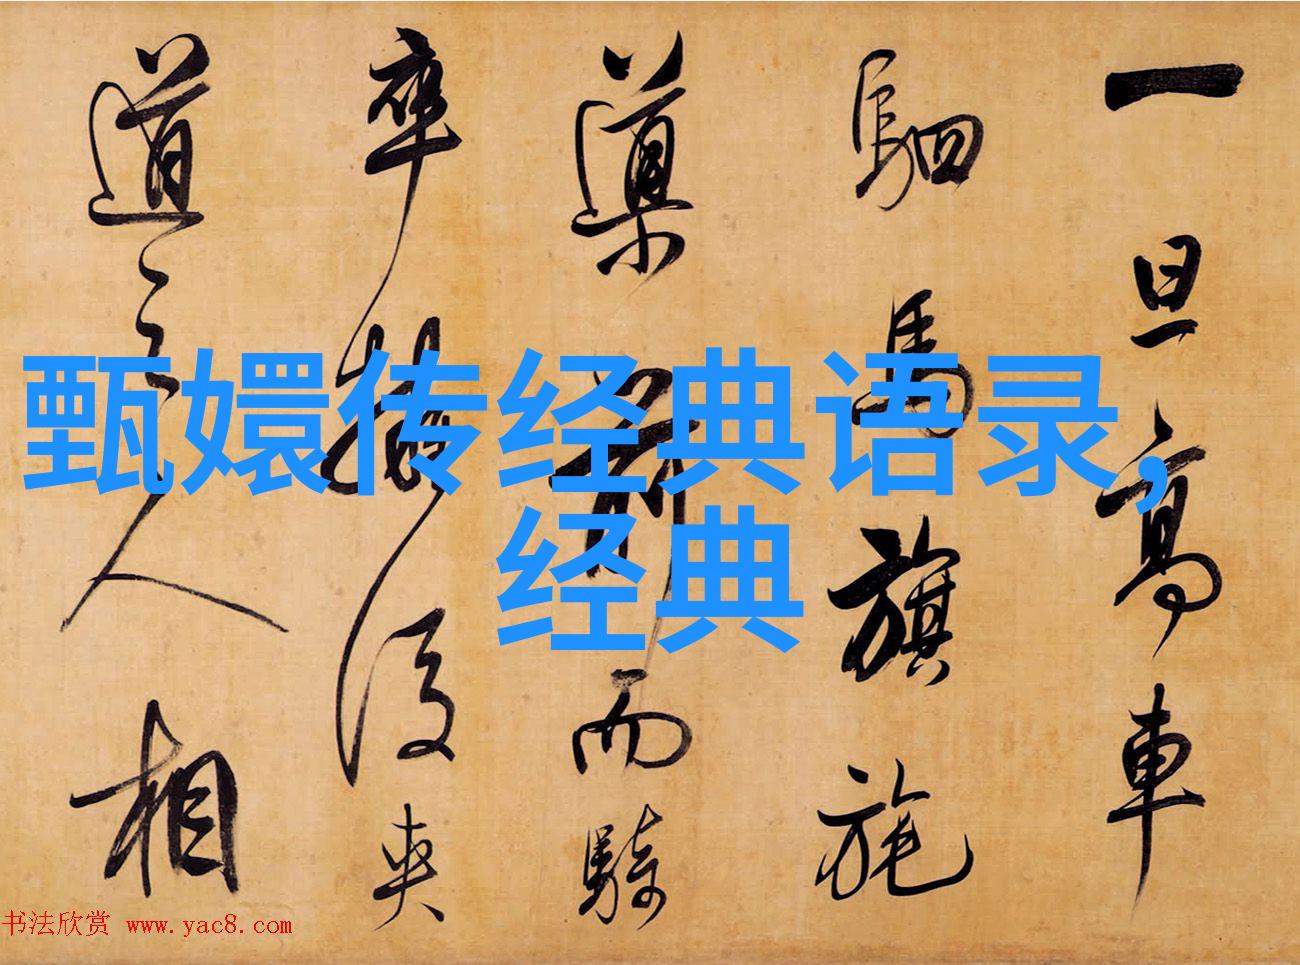 甄嬛传经典语录,
经典
一旦高車
駟馬旗旄
導前而騎
卒擁後夾
道之人相
书法欣赏 www.yac8.com